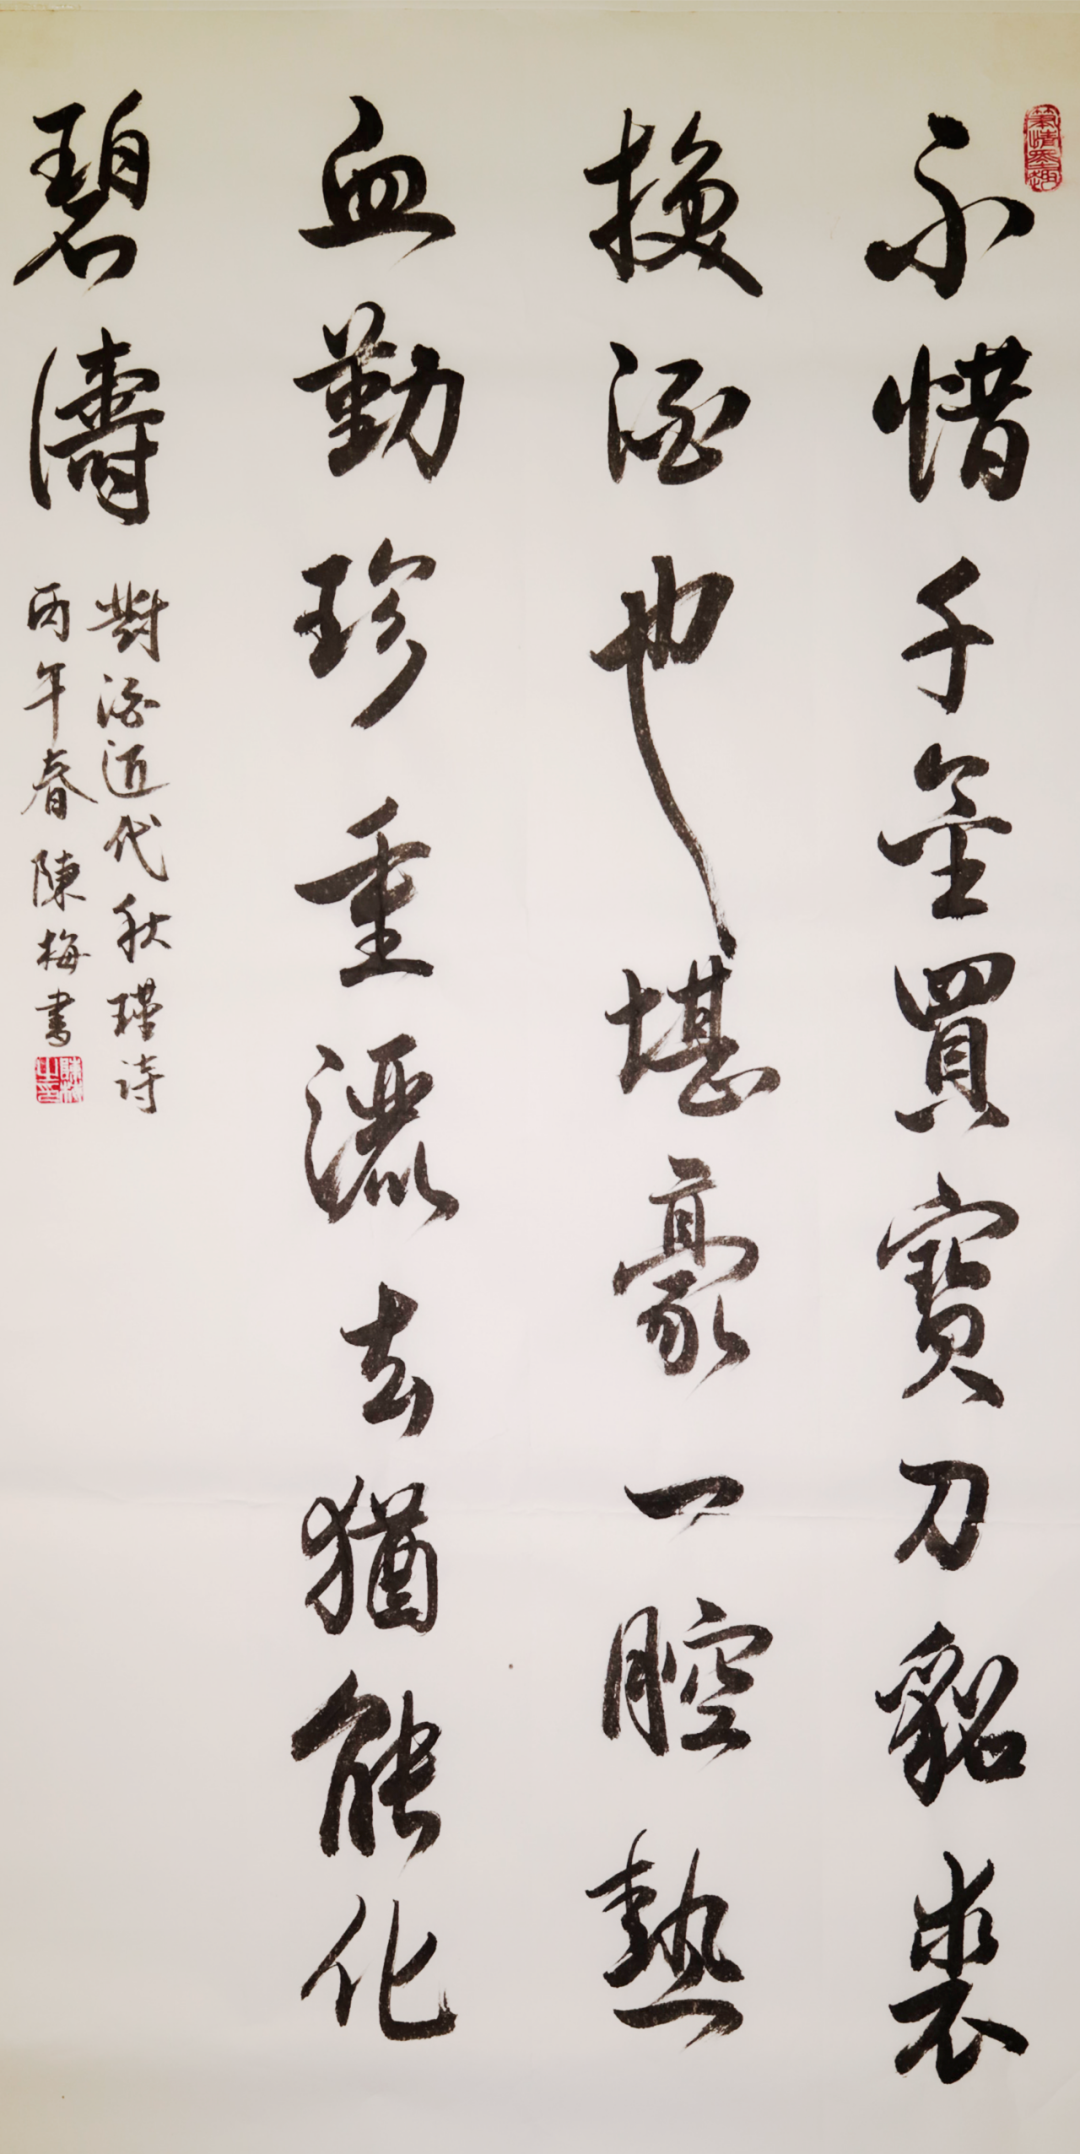 不惜千金買寶刀貂裘
換酒也堪豪一腔熱
血勤珍重灑去猶能化
碧濤
對酒近代秋瑾詩
丙午春陳梅書